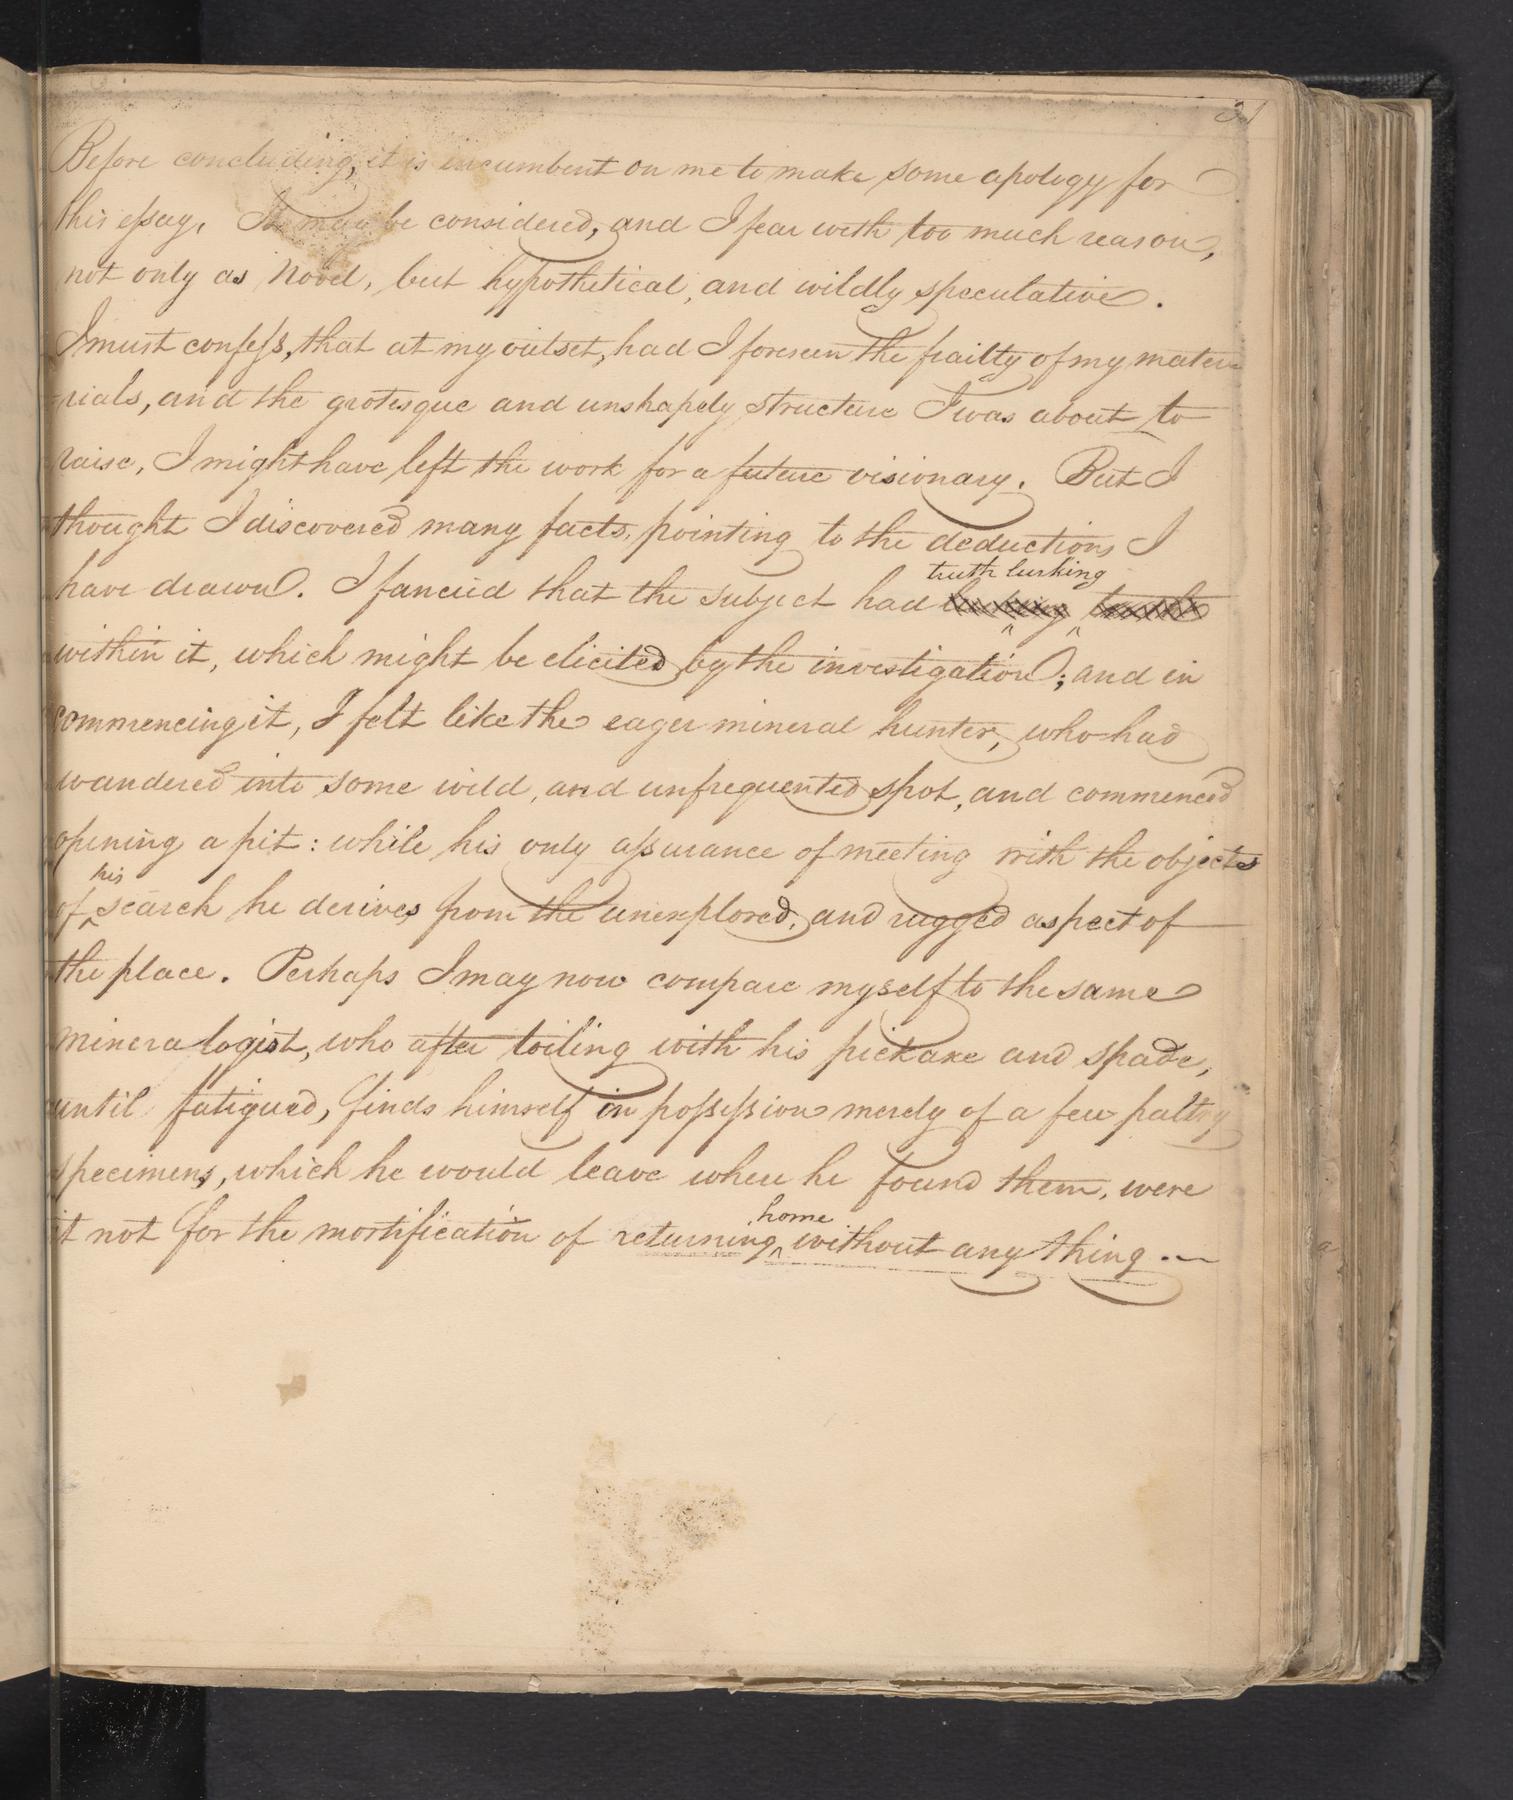 31
Before concluding, it is incumbent on me to make some apology for
this essay. It may be considered, and I fear with too much reason,
not only as novel, but hypothetical, and wildly speculative.
I must confess, that at my outset, had I foreseen the frailty of my mate-
-rials, and the grotesque and unshapely structure I was about to
raise, I might have left the work for a future visionary. But I
thought I discovered many facts, pointing to the deductions I
truth lurking
have drawn. I fancied that the subject had lurking truth
within it, which might be elicited by the investigation; and in
commencing it, I felt like the eager mineral hunter, who had
wandered into some wild, and unfrequented spot, and commenced
opening a pit: while his only assurance of meeting with the objects
his
of search he derives from the unexplored, and rugged aspect of
the place. Perhaps I may now compare myself to the same
mineralogist, who after toiling with his pickaxe and spade,
until fatigued, finds himself in possession merely of a few paltry
specimens, which he would leave where he found them, were
home
it not for the mortification of returning without any thing.—